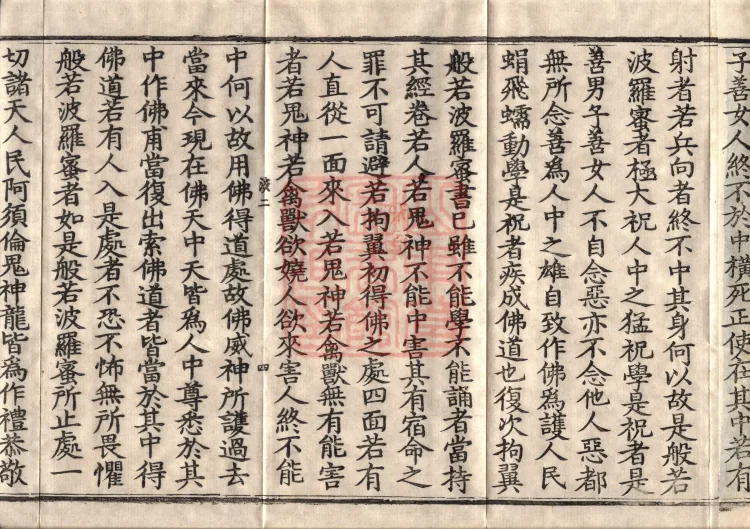 子善女人終不於中橫死正使在其中若有
射者若兵向者終不中其身何以故是般若
波羅蜜者極大祝人中之猛祝學是祝者是
善男子善女人不自念惡亦不念他人惡都
無所念善為人中之雄自致作佛為護人民
蜎飛蠕動學是祝者疾成佛道也復次拘翼
般若波羅蜜書已雖不能學不能誦者當持
其經卷若人若鬼神不能中害其有宿命之
罪不可請避若拘翼初得佛之處四面若有
人直從一面來入若鬼神若禽獸無有能害
者若鬼神若禽獸欲嬈人欲來害人終不能
中何以故用佛得道處故佛威神所護過去
當來今現在佛天中天皆為人中尊悉於其
中作佛甫當復出索佛道者皆當於其中得
佛道若有人入是處者不恐不怖無所畏懼
般若波羅蜜者如是般若波羅蜜所止處一
切諸天人民阿須倫鬼神龍皆為作禮恭敬
四